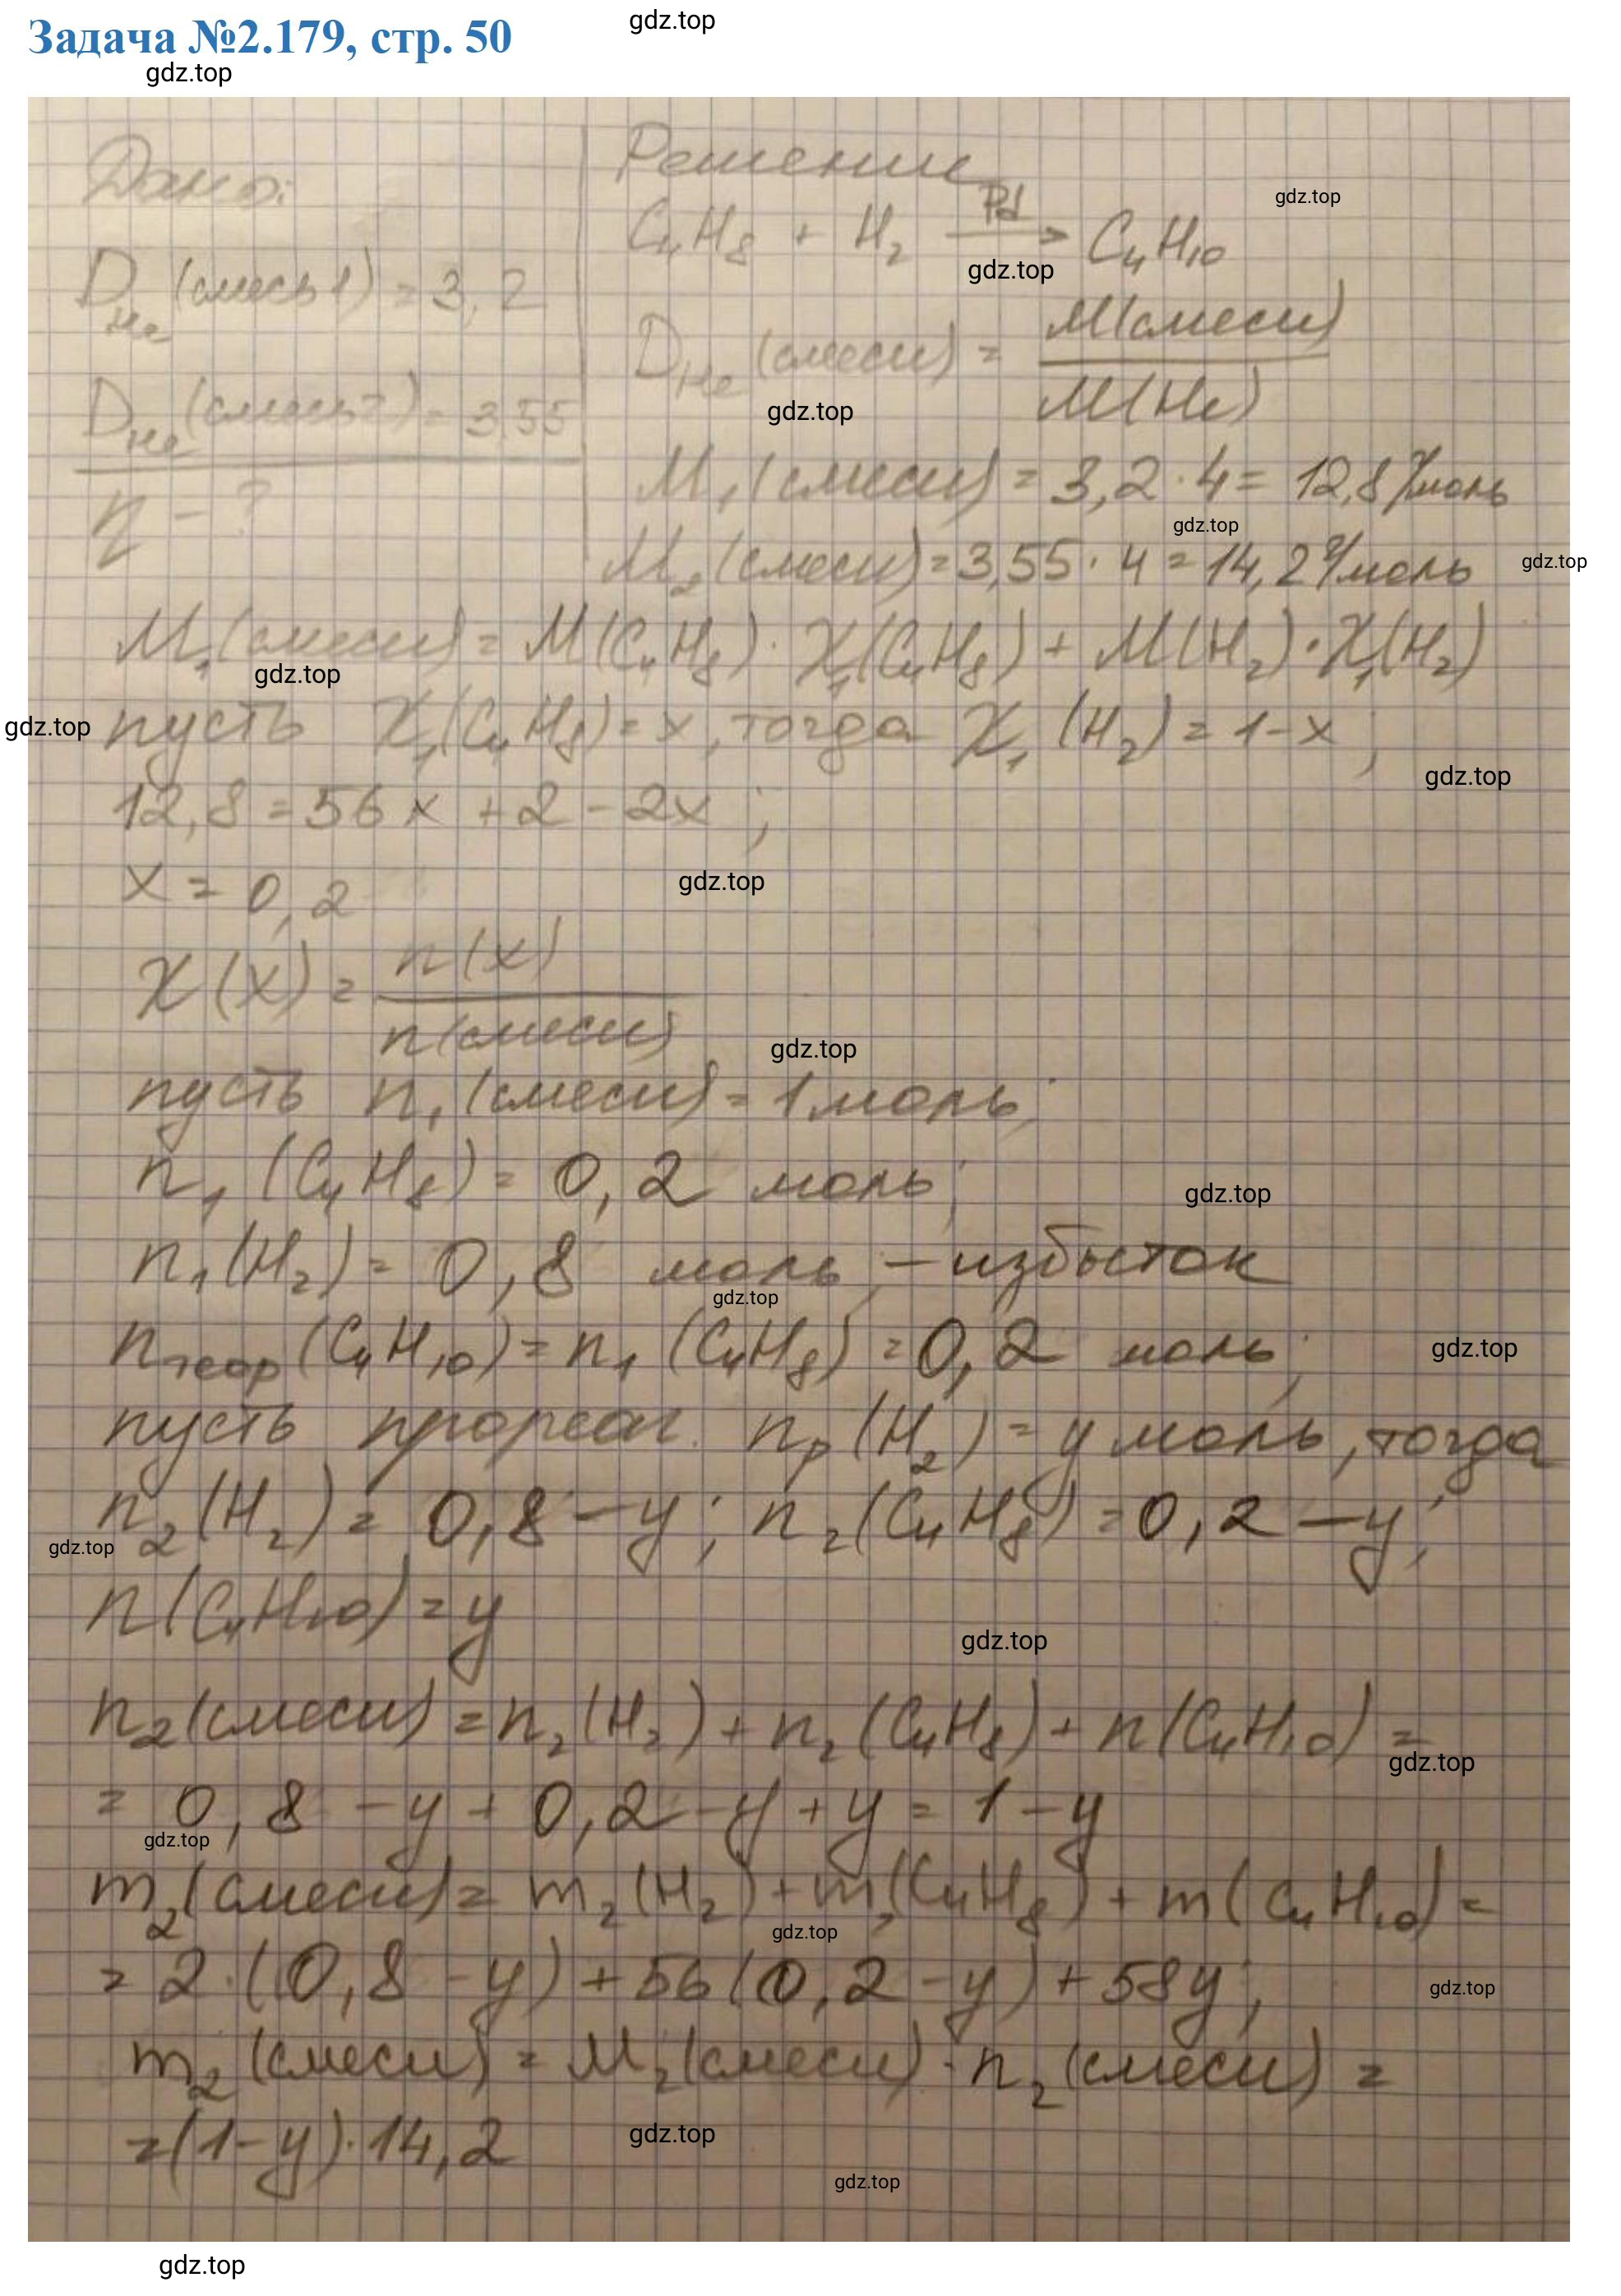 Задача №2.179, стр. 50
gdz.top
gdz.top
Дано:
D He (смесь 1) = 3,2
D He (смесь 2) = 3,55
η - ?
Решение
C₄H₈ + H₂ —Pd→ C₄H₁₀
gdz.top
gdz.top
D He (смеси) = M(смеси) / M(He)
gdz.top
M₁(смеси) = 3,2 · 4 = 12,8 г/моль
gdz.top
M₂(смеси) = 3,55 · 4 = 14,2 г/моль
gdz.top
M₁(смеси) = M(C₄H₈) · χ₁(C₄H₈) + M(H₂) · χ₁(H₂)
gdz.top
gdz.top
пусть χ₁(C₄H₈) = x, тогда χ₁(H₂) = 1 - x;
gdz.top
12,8 = 56x + 2 - 2x;
x = 0,2
gdz.top
χ(X) = n(X) / n(смеси)
gdz.top
пусть n₁(смеси) = 1 моль;
n₁(C₄H₈) = 0,2 моль;
gdz.top
n₁(H₂) = 0,8 моль; - избыток
gdz.top
n теор(C₄H₁₀) = n₁(C₄H₈) = 0,2 моль;
gdz.top
пусть прореаг. nₚ(H₂) = y моль, тогда
n₂(H₂) = 0,8 - y; n₂(C₄H₈) = 0,2 - y;
gdz.top
n(C₄H₁₀) = y
gdz.top
n₂(смеси) = n₂(H₂) + n₂(C₄H₈) + n(C₄H₁₀) =
gdz.top
= 0,8 - y + 0,2 - y + y = 1 - y
gdz.top
m₂(смеси) = m₂(H₂) + m₂(C₄H₈) + m(C₄H₁₀) =
gdz.top
= 2 · (0,8 - y) + 56(0,2 - y) + 58y;
gdz.top
m₂(смеси) = M₂(смеси) · n₂(смеси) =
= (1 - y) · 14,2
gdz.top
gdz.top
gdz.top